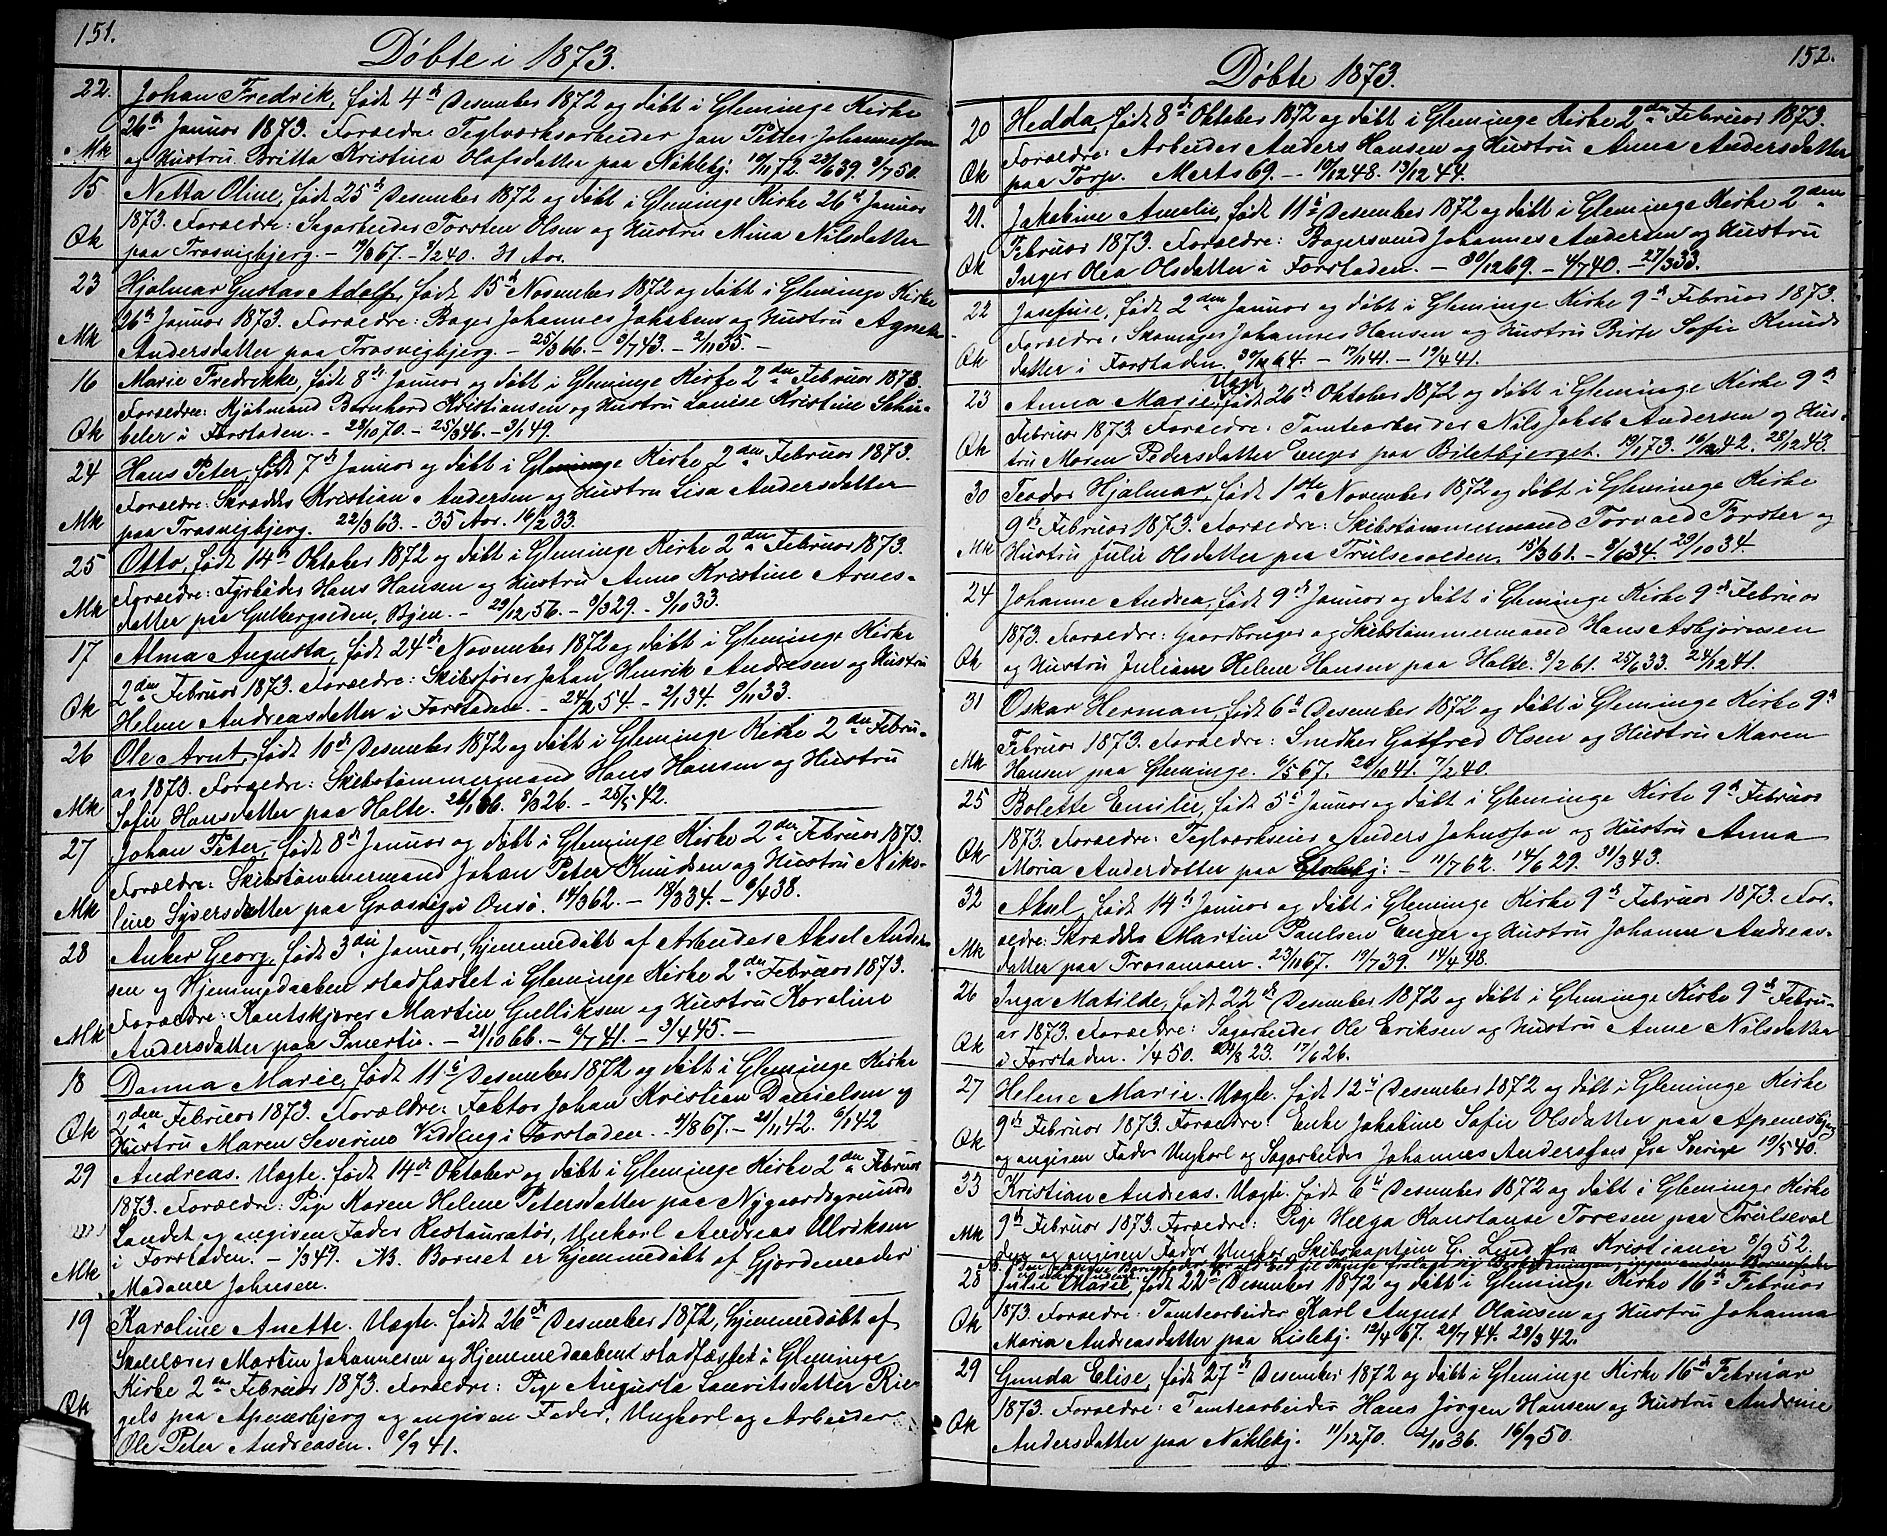 151.
Døbte i 1873.
22. Johan Fredrik, født 4de Desember 1872 og døbt i Gleminge Kirke
26de Januar 1873. Forældre: Teglværksarbeider Jan Petter Johannesson
Mk og Hustru Britta Kristina Olafsdatter paa Nøklebj. 19/1172. 29/639. 3/750.
15 Netta Oline, født 25de Desember 1872 og døbt i Gleminge Kirke 26de Januar
1873. Forældre: Sagarbeider Torsten Olsen og Hustru Mina Nilsdatter
Qk paa Trosvigbjerg. - 19/667. - 9/240. 31 Aar.
23 Hjalmar Gustav Adolf, født 15de November 1872 og døbt i Gleminge Kirke
26de Januar 1873. Forældre: Bager Johannes Jakobsen og Hustru Agnete
Mk Andersdatter paa Trosvigbjerg. - 25/366. - 9/743. - 2/1135. -
16 Marie Fredrikke, født 8de Januar og døbt i Gleminge Kirke 2den Februar 1873.
Forældre: Kjøbmand Bernhard Kristiansen og Hustru Louise Kristine Schu-
Qk beler i Forstaden. - 28/1070. - 25/346. - 3/149.
24 Hans Peter, født 7de Januar og døbt i Gleminge Kirke 2den Februar 1873.
Forældre: Skrædder Kristian Andersen og Hustru Lisa Andersdatter
Mk paa Trosvigbjerg. 22/363. - 35 Aar. 16/233.
25 Otto, født 14de Oktober 1872 og døbt i Gleminge Kirke 2den Februar 1873.
Forældre: Fyrbøder Hans Hansen og Hustru Anne Kristine Arnes-
Mk datter paa Gulbergsiden, Byen. - 29/1256. - 9/329. - 9/1033.
17 Alma Augusta, født 24de November 1872 og døbt i Gleminge Kirke
2den Februar 1873. Forældre: Skibsfører Johan Henrik Andresen og Hustru
Qk Helene Andreasdatter i Forstaden. - 24/254. - 2/134. 9/1133.
26 Ole Arnt, født 10de Desember 1872 og døbt i Gleminge Kirke 2den Febru-
ar 1873. Forældre: Skibstømmermand Hans Hansen og Hustru
Mk Sofie Hansdatter paa Holte. 26/166. 8/326. - 25/542.
27 Johan Peter, født 8de Januar og døbt i Gleminge Kirke 2den Februar 1873.
Forældre: Skibstømmermand Johan Peter Knudsen og Hustru Niko-
Mk line Syversdatter paa Græsvig i Onsø. 14/362. - 18/334. - 9/438.
28 Anker Georg, født 3die Januar, hjemmedøbt af Arbeider Aksel Ander-
sen og Hjemmedaaben stadfæstet i Gleminge Kirke 2den Februar 1873.
Forældre: Kantskjører Martin Gulliksen og Hustru Karoline
Mk Andersdatter paa Smertu. - 21/1066. - 6/741. - 3/445. -
18 Danna Marie, født 11te Desember 1872 og døbt i Gleminge Kirke
2den Februar 1873. Forældre: Faktor Johan Kristian Danielsen og
Qk Hustru Maren Severine Vidding i Forstaden. - 4/867. - 21/1142. 6/142
29 Andreas. Uægte. født 14de Oktober og døbt i Gleminge Kirke 2den Februar
1873. Forældre: Pige Karen Helene Petersdatter paa Nygaardsgrunds
Landet og angiven Fader Restauratør, Unkarl Andreas Ulriksen
i Forstaden. - 1/349. NB. Barnet er hjemmedøbt af Gjordemoder
Mk Madame Johnsen.
19 Karoline Anette. Uægte. født 26de Desember 1872, hjemmedøbt af
Skolelærer Martin Johannesen og Hjemmedaaben stadfæstet i Gleminge
Kirke 2den Februar 1873. Forældre: Pige Augusta Lauritsdatter Rie-
Qk gels paa Apenesbjerg og angiven Fader, Ungkarl og Arbeider
Ole Peter Andreasen. 9/941.
152.
Døbte 1873.
20 Hedda, født 8de Oktober 1872 og døbt i Gleminge Kirke 2den Februar 1873.
Forældre: Arbeider Anders Hansen og Hustru Anna Andersdatter
Qk paa Torp. Merts 69. - 19/1248. 13/1244.
21. Jakobine Amalie, født 11te Desember 1872 og døbt i Gleminge Kirke 2den
Februar 1873. Forældre: Bagersvend Johannes Andersen og Hustru
Qk Inger Olea Olsdatter i Forstaden. - 30/1269. - 4/740. - 27/333.
22 Josefine, født 2den Januar og døbt i Gleminge Kirke 9de Februar 1873.
Forældre: Skomager Johannes Hansen og Hustru Birte Sofie Knuds
Qk datter i Forstaden. 64. - 17/141. - 19/441.
23 Anna Marie, Uægt født 26de Oktober 1872 og døbt i Gleminge Kirke 9de
Februar 1873. Forældre: Tomtearbeider Nils Jakob Andersen og Hus-
Qk tru Maren Pedersdatter Enger paa Biletbjerget. 19/173. 42. 28/1243.
30 Teodor Hjalmar, født 1ste November 1872 og døbt i Gleminge Kirke
9de Februar 1873. Forældre: Skibstømmermand Torvald Forster og
Mk Hustru Julie Olsdatter paa Trulsevolden. 15/361. - 8/634. 29/1034.
24 Johanne Andrea, født 9de Januar og døbt i Gleminge Kirke 9de Februar
1873. Forældre: Gaardbruger og Skibstømmermand Hans Asbjørnsen
Qk og Hustru Juliane Helene Hansen paa Holte. 8/1261. 25/633. 24/1241.
31 Oskar Herman, født 6te Desember 1872 og døbt i Gleminge Kirke 9de
Februar 1873. Forældre: Snedker Gotfred Olsen og Hustru Maren
Mk Hansen paa Gleminge. 6/567. 26/1041. 7/240.
25 Bolette Emilie, født 5te Januar og døbt i Gleminge Kirke 9de Februar
1873. Forældre: Teglværkseier Anders Johnsson og Hustru Anna
Qk Maria Andersdatter paa - 11/762. 14/629. 31/343.
32 Aksel, født 14de Januar og døbt i Gleminge Kirke 9de Februar 1873. For-
ældre: Skrædder Martin Paulsen Enger og Hustru Johanne Andreas-
Mk datter paa Trosamoen. 23/1167. 19/739. 14/448.
26 Inga Matilde, født 22de Desember 1872 og døbt i Gleminge Kirke 9de Febru-
ar 1873. Forældre: Sagarbeider Ole Eriksen og Hustru Anne Nilsdatter
Qk i Forstaden. 1/450. 24/823. 17/626.
27 Helene Marie. Uægte. født 12te Desember 1872 og døbt i Gleminge Kirke
9de Februar 1873. Forældre: Enke Jakobine Sofie Olsdatter paa Apenesbjerg
Qk og angiven Fader Ungkarl og Sagarbeider Johannes Andersson fra Sverige 19/540.
33 Kristian Andreas. Uægte. født 6te Desember 1872 og døbt i Gleminge Kirke
Mk 9de Februar 1873. Forældre: Pige Helga Konstanse Toresen paa Trulsevol
den og angiven Fader Ungkar Skibskaptein G. Lind fra Kristiania 8/952.
28 Julie Marie, født 22de Desember 1872 og døbt i Gleminge Kirke 16de Februar
1873. Forældre: Tomtearbeider Karl August Olausen og Hustru Johanna
Qk Maria Andreasdatter paa Lislebj. 12/467. 29/744. 28/342.
29 Gunda Elise, født 27de Desember 1872 og døbt i Gleminge Kirke 16de Februar
1873. Forældre: Tomtearbeider Hans Jørgen Hansen og Hustru Andrine
Qk Andersdatter paa Nøklebj. 11/1270. 2/1036. 16/950.